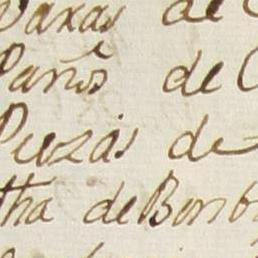 Varas de C
Paños de C
Piezas de
tha de Bomb